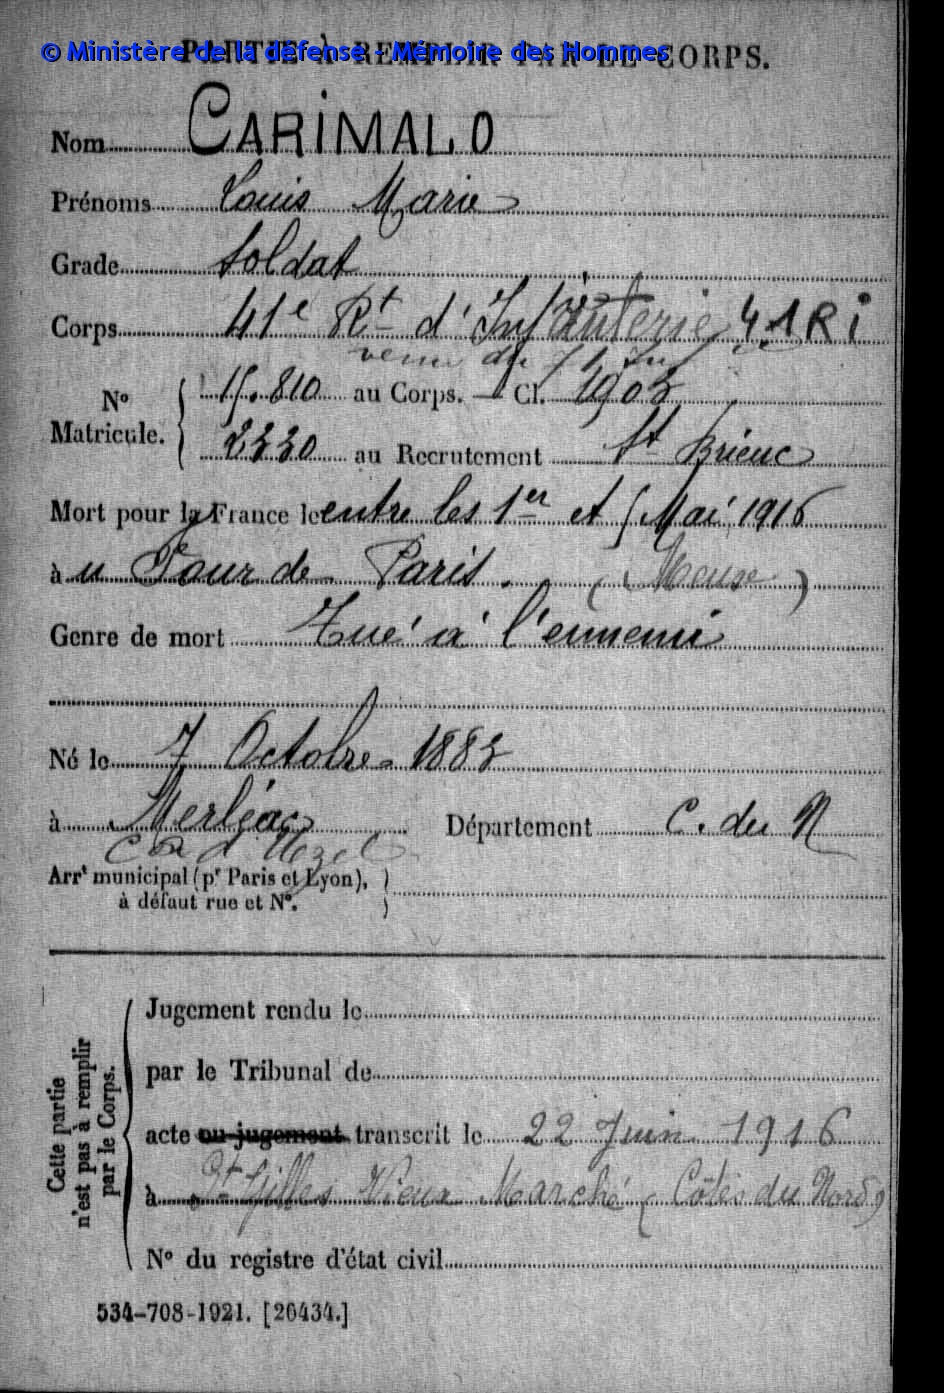 © Ministère de la défense - Mémoire des Hommes
PARTIE À REMPLIR PAR LE CORPS.
Nom CARIMALO
Prénoms Louis Marie
Grade Soldat
Corps 41e Rt d'Infanterie 41 RI
venu du 71 Inf
No Matricule. 15.810 au Corps. — Cl. 1903
2330 au Recrutement St Brieuc
Mort pour la France le entre les 1er et 5 Mai 1916
à Four de Paris. (Meuse)
Genre de mort Tué à l'ennemi
Né le 7 Octobre 1883
à Merléac Département C. du N
Con d'Uzel
Arrt municipal (pr Paris et Lyon),
à défaut rue et No.
Cette partie
n'est pas à remplir
par le Corps.
Jugement rendu le
par le Tribunal de
acte ou jugement transcrit le 22 Juin 1916
à St Gilles Vieux Marché (Côtes du Nord)
No du registre d'état civil
534-708-1921. [26434.]